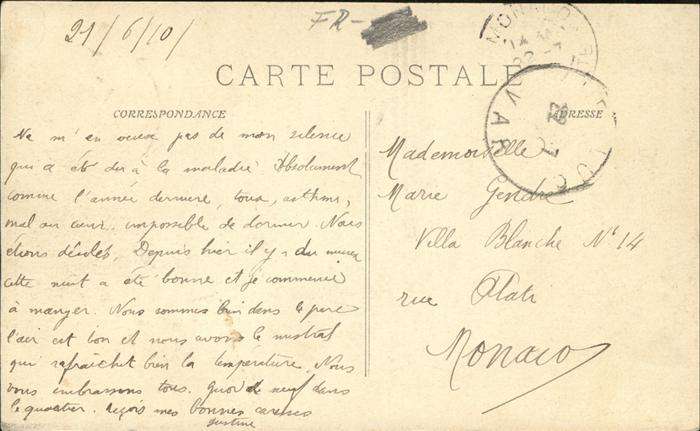 21/6/10/
FR-
MON
CARTE POSTALE
VAR
LUC
CORRESPONDANCE
ADRESSE
Ne m'en veux pas de mon silence
qui a été dû à la maladie Absolument
comme l'année dernière, toux, asthme,
mal au cœur, impossible de dormir. Nous
étions désolés, Depuis hier il y a du mieux
cette nuit a été bonne et je commence
à manger. Nous sommes bien dans le parc
l'air est bon et nous avons le mistral
qui rafraîchit bien la température. Nous
vous embrassons tous. Quoi de neuf dans
le quartier. Reçois mes bonnes caresses
Justine
Mademoiselle
Marie Gendre
Villa Blanche N° 14
rue Plati
Monaco